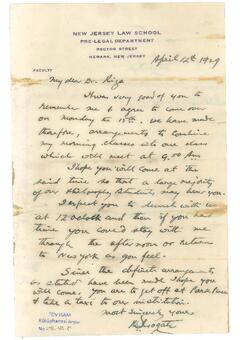 NEW JERSEY LAW SCHOOL
PRE-LEGAL DEPARTMENT
RECTOR STREET
NEWARK, NEW JERSEY
FACULTY
April 12th 1929
My der Dr. Riza
How very good of you to
remember me & agree to come over
on Monday the 15th. We have made
therefore, arrangements to combine
my morning classes into one class
which will meet at 9.00 Am
I hope you will come at the
said time so that a large majority
of our Philosophy students may hear you.
I expect you to lunch with us
at 12 oclock and then if you have
time you could stay with me
through the afternoon or return
to New York as you feel.
Since the definite arrangements
as stated have been made I hope you
will come. You are to get off at Park Place
& take a taxi to our institution.
Most sincerely yours